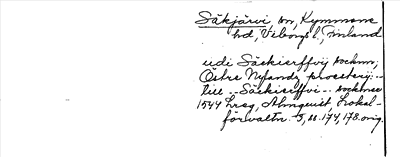 Säkjärvi, sn, Kymmene
hd, Viborgs l, Finland
udi Säckierffvij sochnn;
Östre Nylandz prosterij:-
till .. Säckierffvi .. sochnee
1544 Lreg, Almquist, Lokal-
förvaltn. 5, ss. 174, 178. orig.